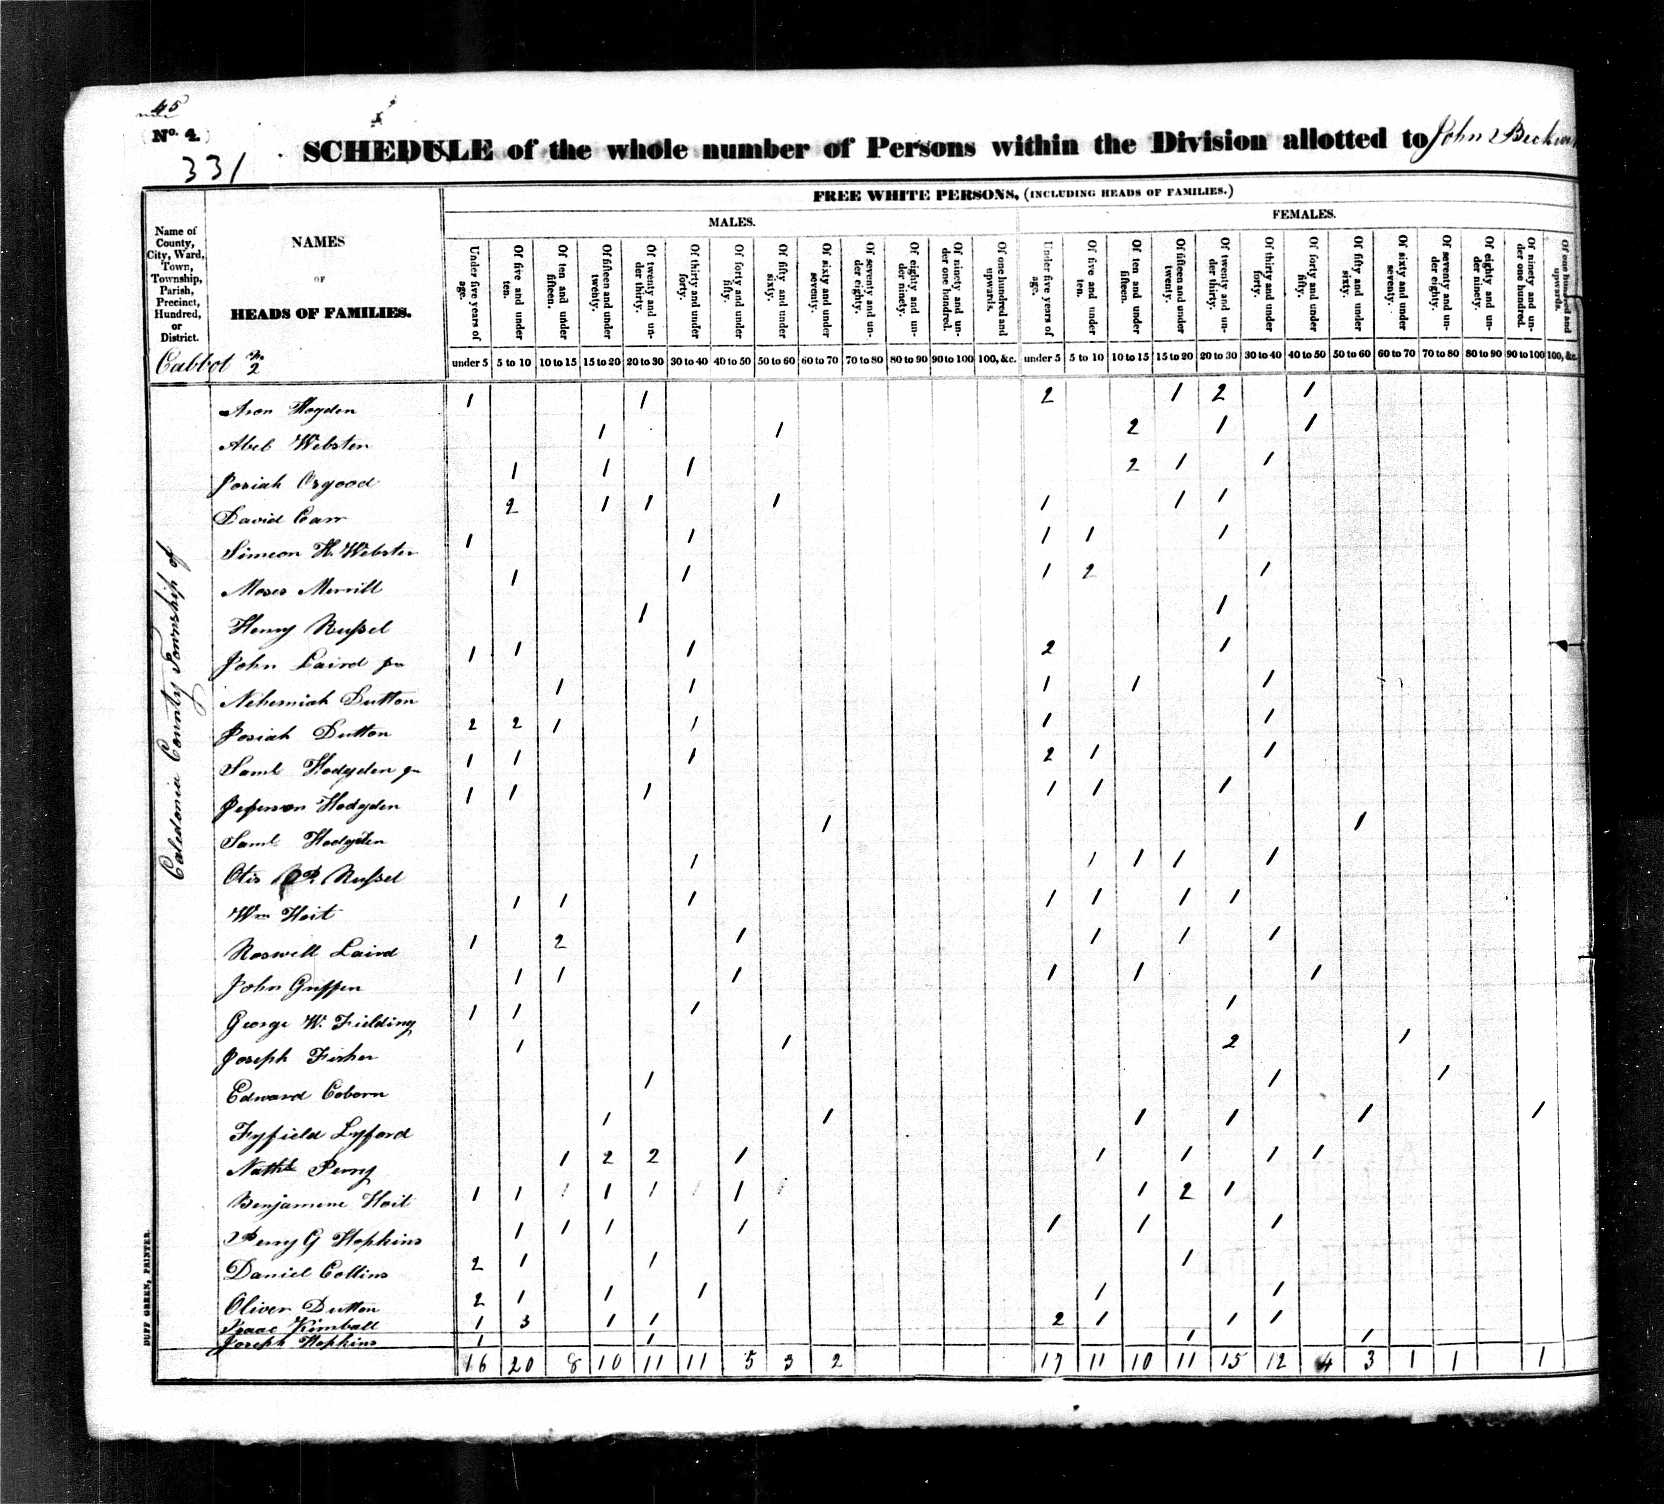 45
No. 4.
331
SCHEDULE of the whole number of Persons within the Division allotted to John
FREE WHITE PERSONS, (INCLUDING HEADS OF FAMILIES.)
MALES. FEMALES.
Name of County, City, Ward, Town, Township, Parish, Precinct, Hundred, or District.
NAMES
OF
HEADS OF FAMILIES.
Under five years of age. Of five and under ten. Of ten and under fifteen. Of fifteen and under twenty. Of twenty and under thirty. Of thirty and under forty. Of forty and under fifty. Of fifty and under sixty. Of sixty and under seventy. Of seventy and under eighty. Of eighty and under ninety. Of ninety and under one hundred. Of one hundred and upwards. Under five years of age. Of five and under ten. Of ten and under fifteen. Of fifteen and under twenty. Of twenty and under thirty. Of thirty and under forty. Of forty and under fifty. Of fifty and under sixty. Of sixty and under seventy. Of seventy and under eighty. Of eighty and under ninety. Of ninety and under one hundred. Of one hundred and upwards.
under 5 5 to 10 10 to 15 15 to 20 20 to 30 30 to 40 40 to 50 50 to 60 60 to 70 70 to 80 80 to 90 90 to 100 100, &c. under 5 5 to 10 10 to 15 15 to 20 20 to 30 30 to 40 40 to 50 50 to 60 60 to 70 70 to 80 80 to 90 90 to 100 100, &c.
Cabbot
Caledonia County Township of
Aron Hogden 1 1 2 1 2 1
Abel Webster 1 1 2 1 1
Josiah Osgood 1 1 1 2 1 1
David Carr 2 1 1 1 1 1 1
Simeon H. Webster 1 1 1 1 1
Moses Merrill 1 1 1 2 1
Henry Russel 1 1
John Laird jr 1 1 1 2 1
Nehemiah Dutton 1 1 1 1 1
Josiah Dutton 2 2 1 1 1 1
Saml Hodgden jr 1 1 1 2 1 1
Jeferson Hodgden 1 1 1 1 1 1
Saml Hodgden 1 1
Otis P. Russel 1 1 1 1 1
Wm Hoit 1 1 1 1 1 1 1
Roswell Laird 1 2 1 1 1 1
John Griffen 1 1 1 1 1 1
George W. Fielding 1 1 1 1
Joseph Fisher 1 1 2 1
Edward Coborn 1 1 1
Fyfield Lyford 1 1 1 1 1 1
Nathl Perry 1 2 2 1 1 1 1 1
Benjamine Hoit 1 1 1 1 1 1 1 1 1 2 1
Perry G Hopkins 1 1 1 1 1 1 1
Daniel Collins 2 1 1 1
Oliver Dutton 2 1 1 1 1 1
Isaac Kimball 1 3 1 1 2 1 1 1
Joseph Hopkins 1 1 1 1
16 20 8 10 11 11 5 3 2 17 11 10 11 15 12 4 3 1 1 1
DUFF GREEN, PRINTER.